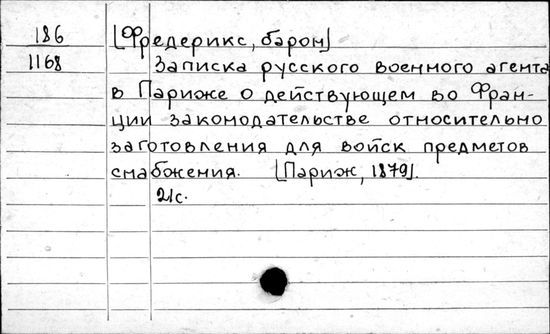 186
1168
[Фредерикс, барон]
Записка русского военного агента
в Париже о действующем во Фран-
ции законодательстве относительно
заготовления для войск предметов
снабжения. [Париж, 1879].
21с.